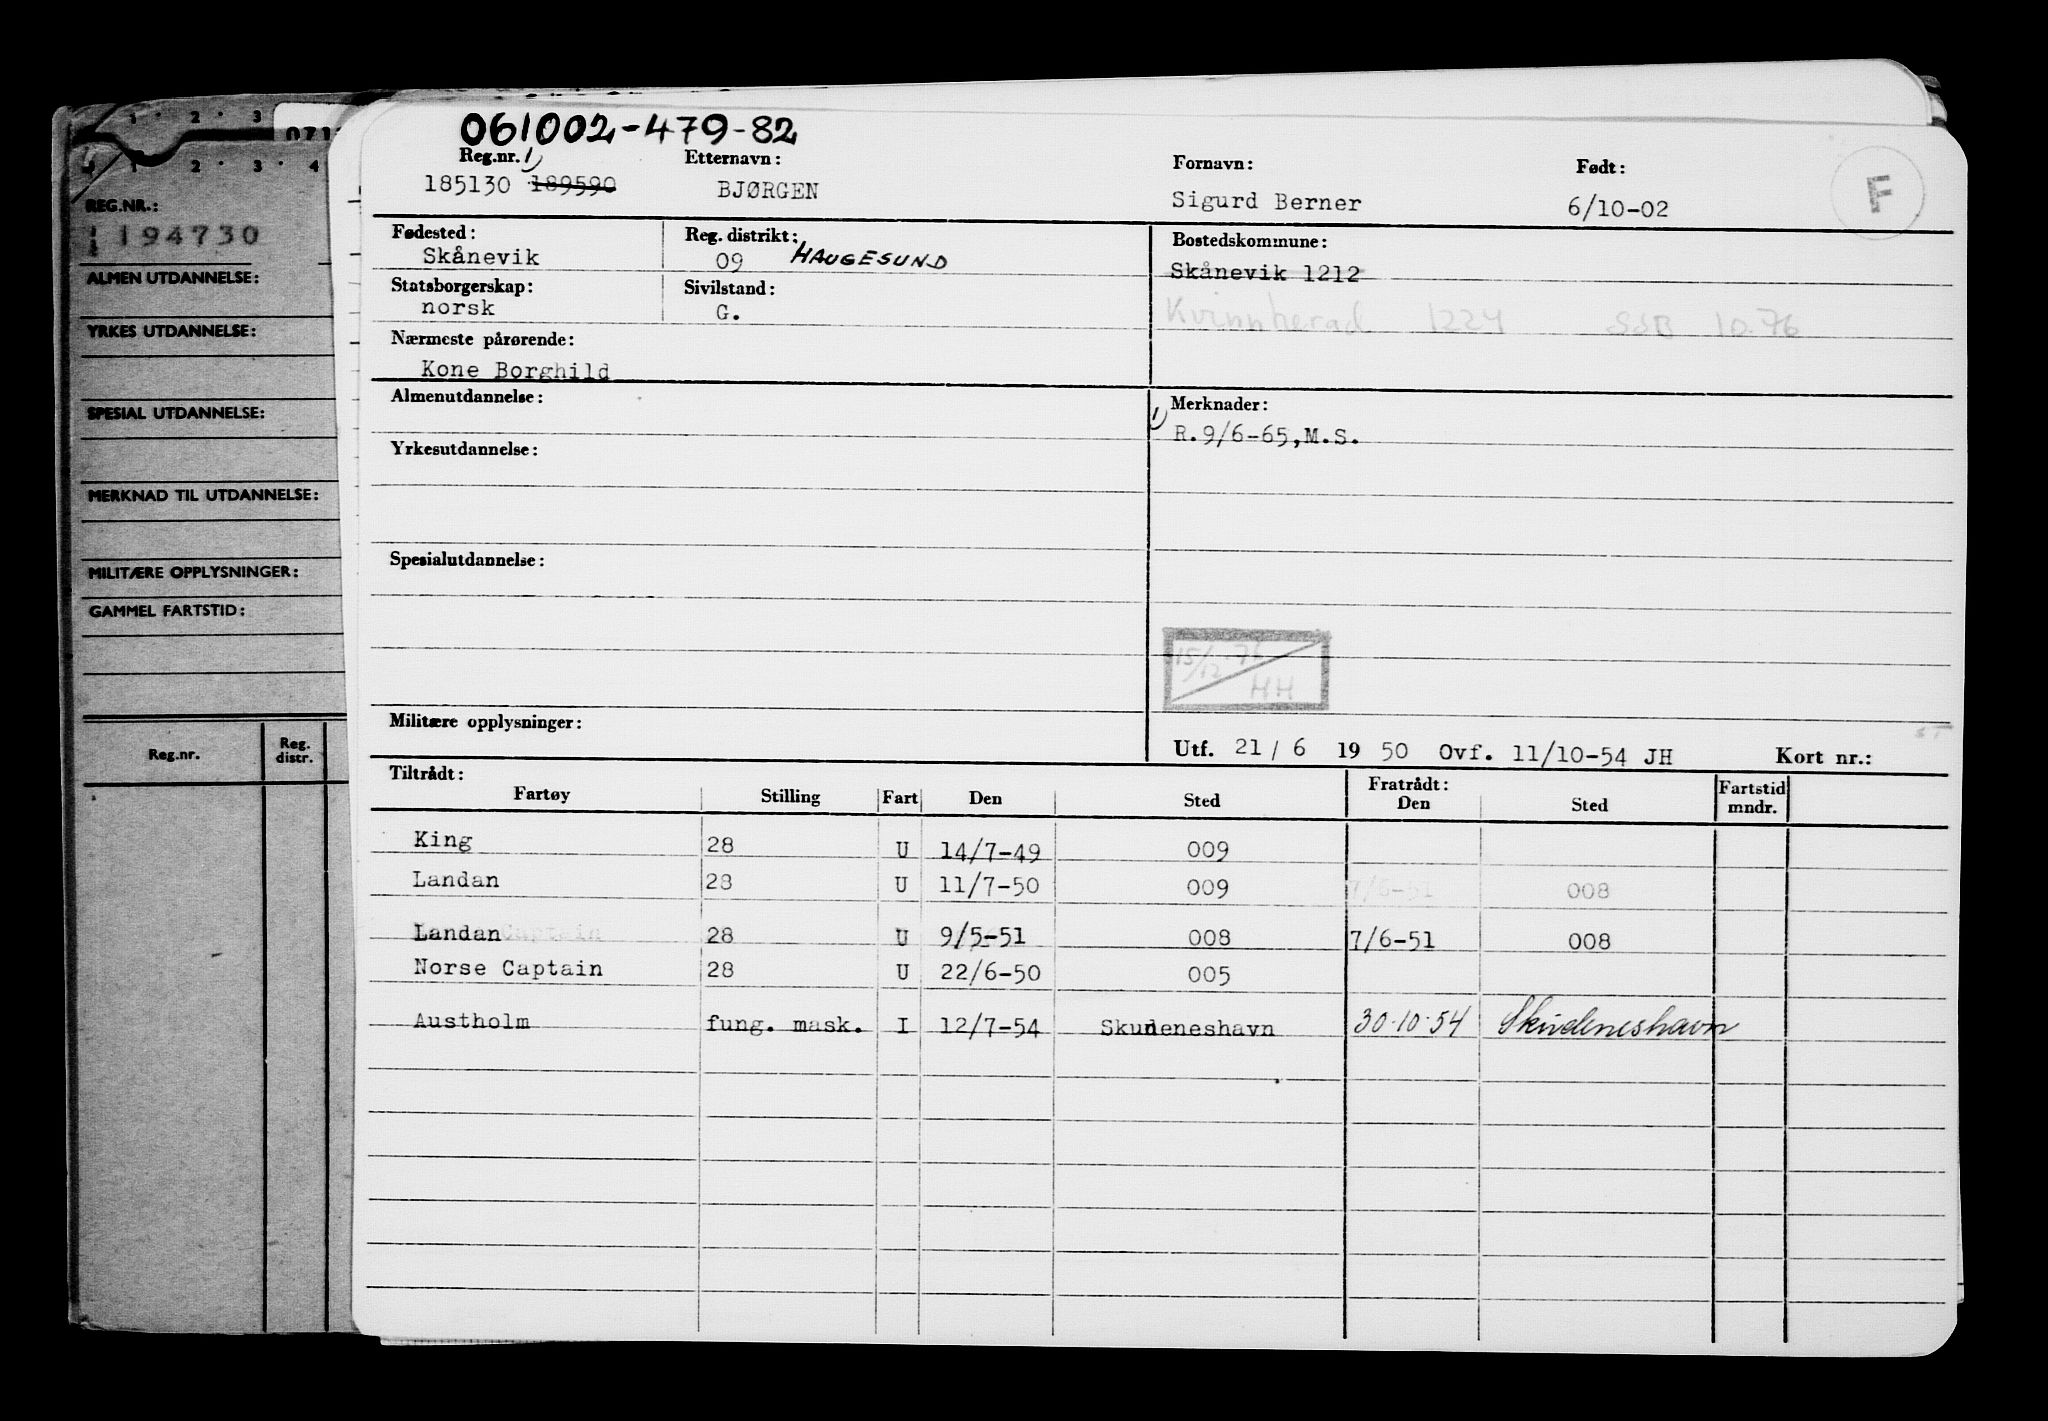 1 · 2 · 3
1 · 2 · 3 · 4
REG.NR.:
194730
ALMEN UTDANNELSE:
YRKES UTDANNELSE:
SPESIAL UTDANNELSE:
MERKNAD TIL UTDANNELSE:
MILITÆRE OPPLYSNINGER:
GAMMEL FARTSTID:
Reg.nr. Reg. distr.
061002-479-82
Reg.nr. 1) Etternavn: Fornavn: Født:
185130 189590 BJØRGEN Sigurd Berner 6/10-02 F
Fødested: Reg. distrikt: Bostedskommune:
Skånevik 09 HAUGESUND Skånevik 1212
Statsborgerskap: Sivilstand:
norsk G. Kvinnherad 1224 SSB 10.76
Nærmeste pårørende:
Kone Borghild
Almenutdannelse: 1) Merknader:
R.9/6-65,M.S.
Yrkesutdannelse:
Spesialutdannelse:
15/12.76
HH
Militære opplysninger:
Utf. 21 / 6 19 50 Ovf. 11/10-54 JH Kort nr.:
Tiltrådt: Fratrådt: Fartstid
Fartøy Stilling Fart Den Sted Den Sted mndr.
King 28 U 14/7-49 009
Landan 28 U 11/7-50 009 7/6-51 008
Landan 28 U 9/5-51 008 7/6-51 008
Norse Captain 28 U 22/6-50 005
Austholm fung. mask. I 12/7-54 Skudeneshavn 30.10.54 Skudeneshavn